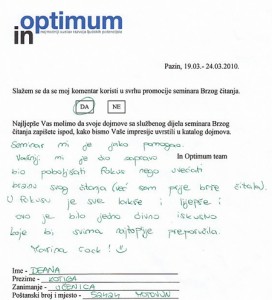 optimum
in
Pazin, 19.03.- 24.03.2010.
Slažem se da se moj komentar koristi u svrhu promocije seminara Brzog čitanja.
DA NE
Najljepše Vas molimo da svoje dojmove sa službenog dijela seminara Brzog
čitanja zapišete ispod, kako bismo Vaše impresije uvrstili u katalog dojmova.
Seminar mi je jako pomogao.
In Optimum team
Važniji mi je do zapravo
bio poboljšati fokus nego uvećati
brzinu svog čitanja (već sam prije brže čitala).
U fokusu je sve lakše i ljepše i
ovo je bilo jedno divno iskustvo
koje bi svima najtoplije preporučila.
You're cool! ☺
Ime - DEANA
Prezime - KOTIGA
Zanimanje - UČENICA
Poštanski broj i mjesto - 52424 MOTOVUN